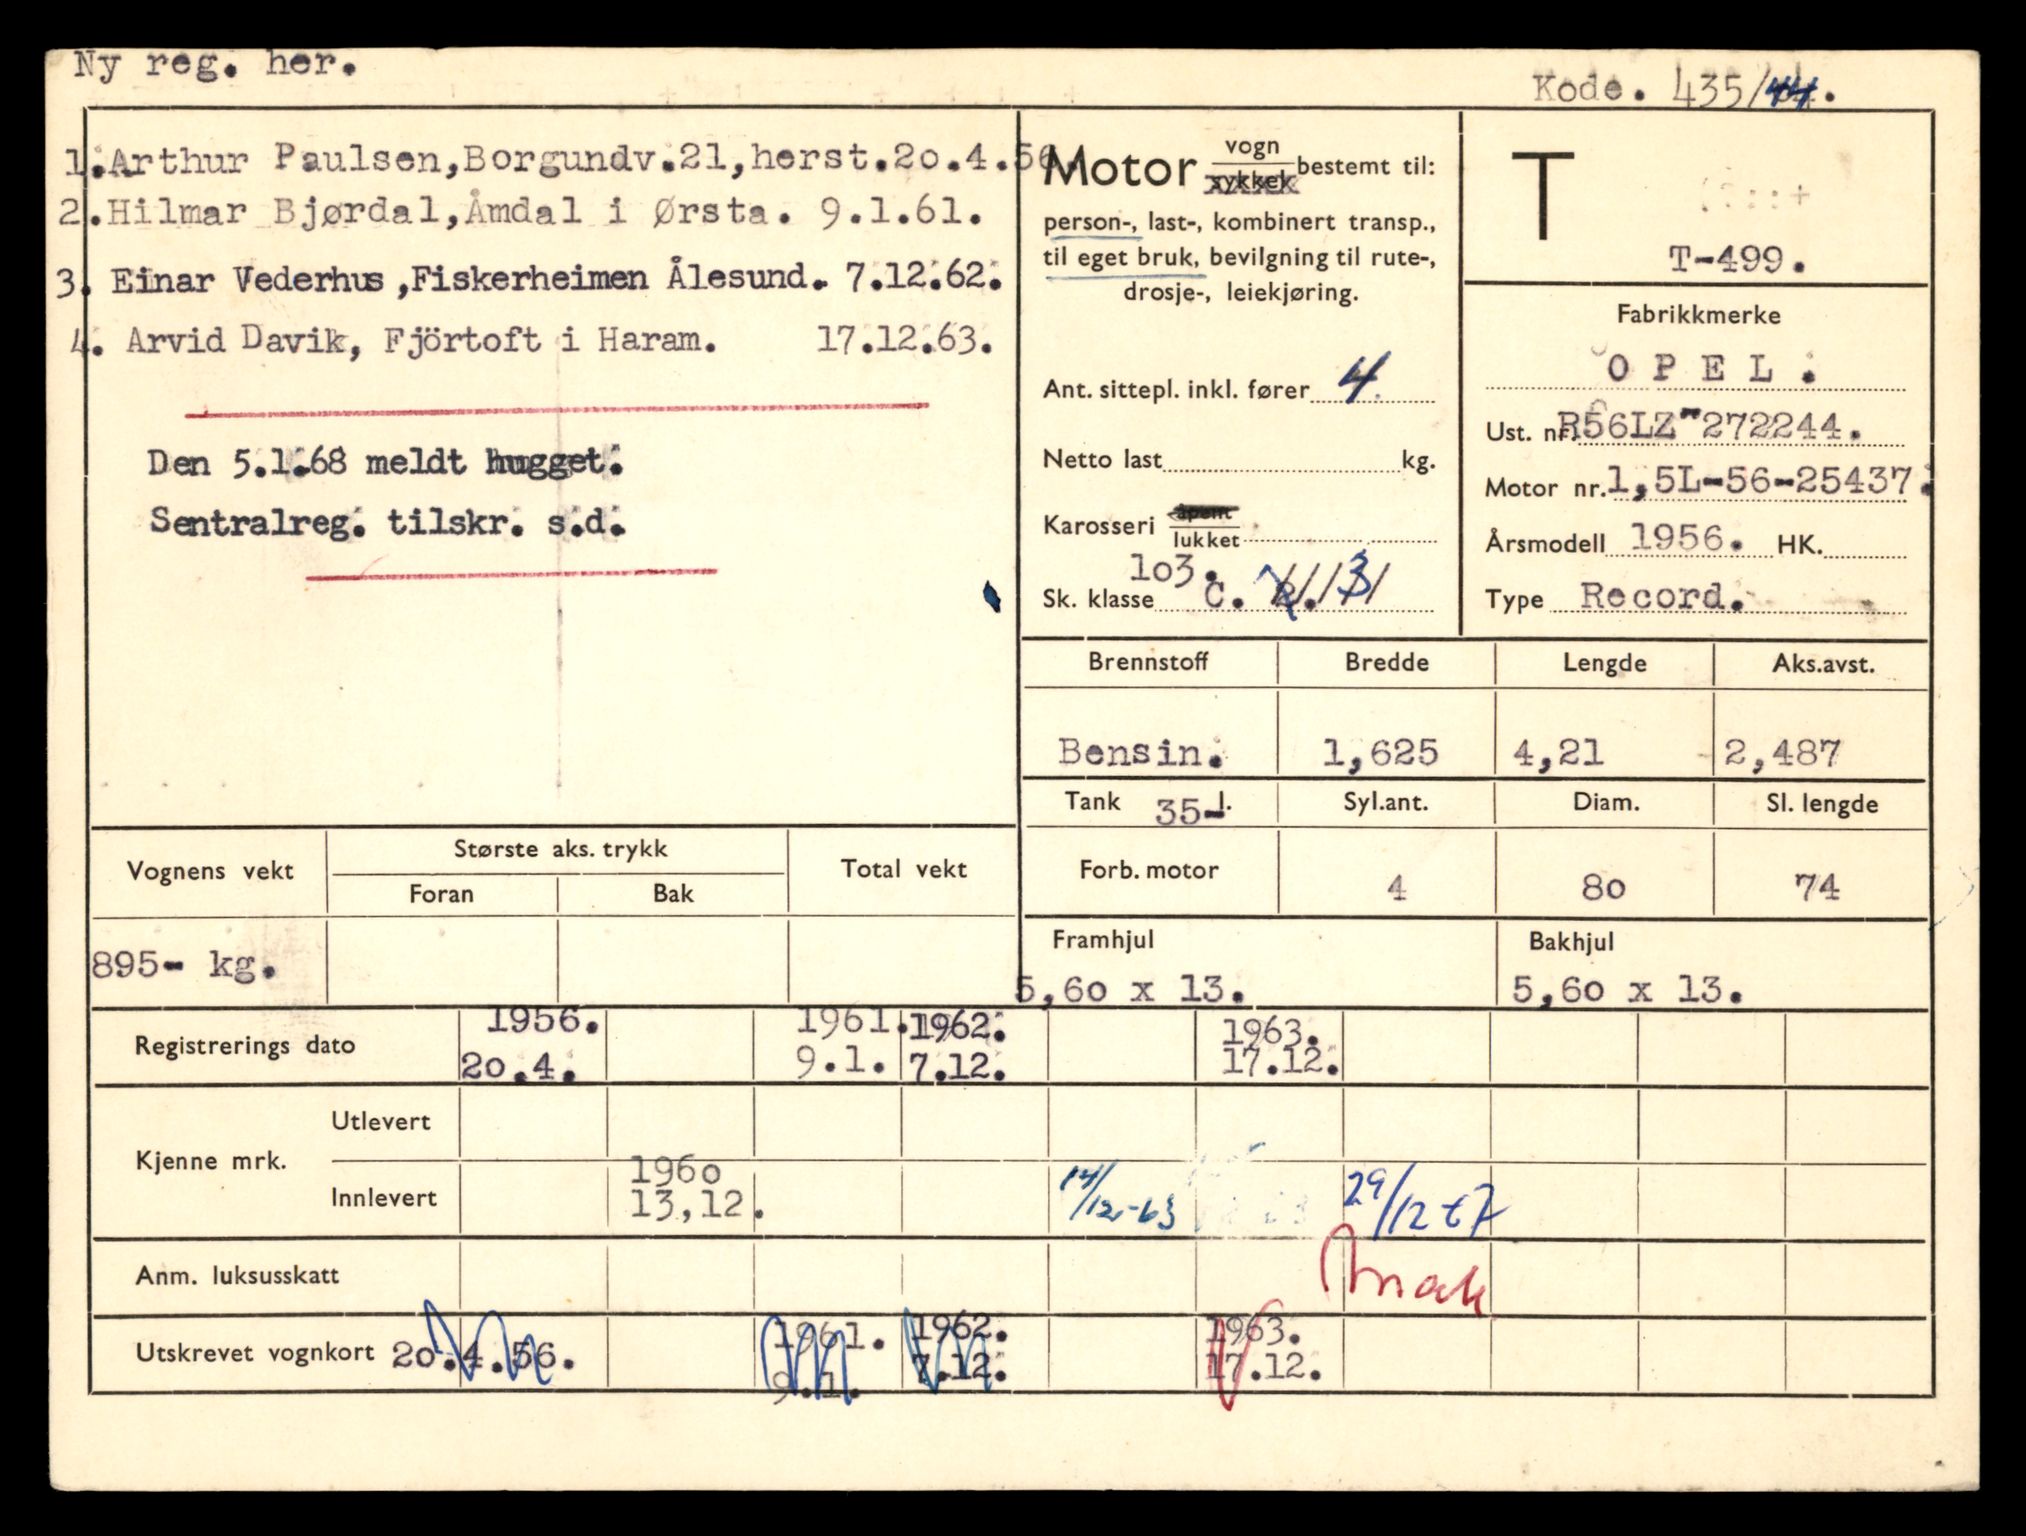 Ny reg. her.
Kode. 435/44.
1.Arthur Paulsen,Borgundv.21,herst.20.4.56.
2.Hilmar Bjørdal,Åmdal i Ørsta. 9.1.61.
3. Einar Vederhus,Fiskerheimen Ålesund. 7.12.62.
4. Arvid Davik, Fjörtoft i Haram. 17.12.63.
Den 5.1.68 meldt hugget.
Sentralreg. tilskr. s.d.
Motor vogn sykkel bestemt til:
person-, last-, kombinert transp.,
til eget bruk, bevilgning til rute-,
drosje-, leiekjøring.
Ant. sittepl. inkl. fører 4.
Netto last kg.
Karosseri åpent lukket
103.
Sk. klasse C.
T
T-499.
Fabrikkmerke
OPEL.
Ust. nr. R56LZ-272244.
Motor nr. 1,5L-56-25437.
Årsmodell 1956. HK.
Type Record.
Brennstoff Bredde Lengde Aks.avst.
Bensin. 1,625 4,21 2,487
Tank 35-l. Syl.ant. Diam. Sl. lengde
Forb. motor 4 80 74
Framhjul Bakhjul
5,60 x 13. 5,60 x 13.
Vognens vekt Største aks. trykk Total vekt
Foran Bak
895- kg.
Registrerings dato 1956. 1961. 1962. 1963.
20.4. 9.1. 7.12. 17.12.
Kjenne mrk.
Utlevert
Innlevert 1960 14/12-63 29/12 67
13,12.
Anm. luksusskatt
Utskrevet vognkort 20.4.56. 1961. 1962. 1963.
9.1. 7.12. 17.12.